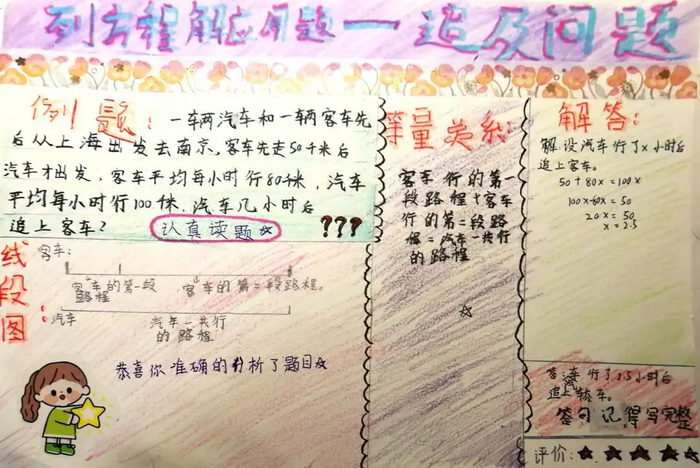 列方程解应用题一追及问题
例题：一车两汽车和一辆客车先
后从上海出发去南京，客车先走50千米后
汽车才出发，客车平均每小时行80千米，汽车
平均每小时行100千米，汽车几小时后
追上客车？ 认真读题 ???
线段图：
客车：
客车的第一段路程 客车的第二段路程。
汽车
汽车一共行的路程
恭喜你准确的分析了题目
等量关系：
客车行的第一
段路程+客车
行的第二段路
程=汽车一共行
的路程
解答：
解：设汽车行了x小时后
追上客车。
50+80x=100x
100x-80x=50
20x=50
x=2.5
答：汽车行了2.5小时后
追上客车。
答句记得写完整
评价：